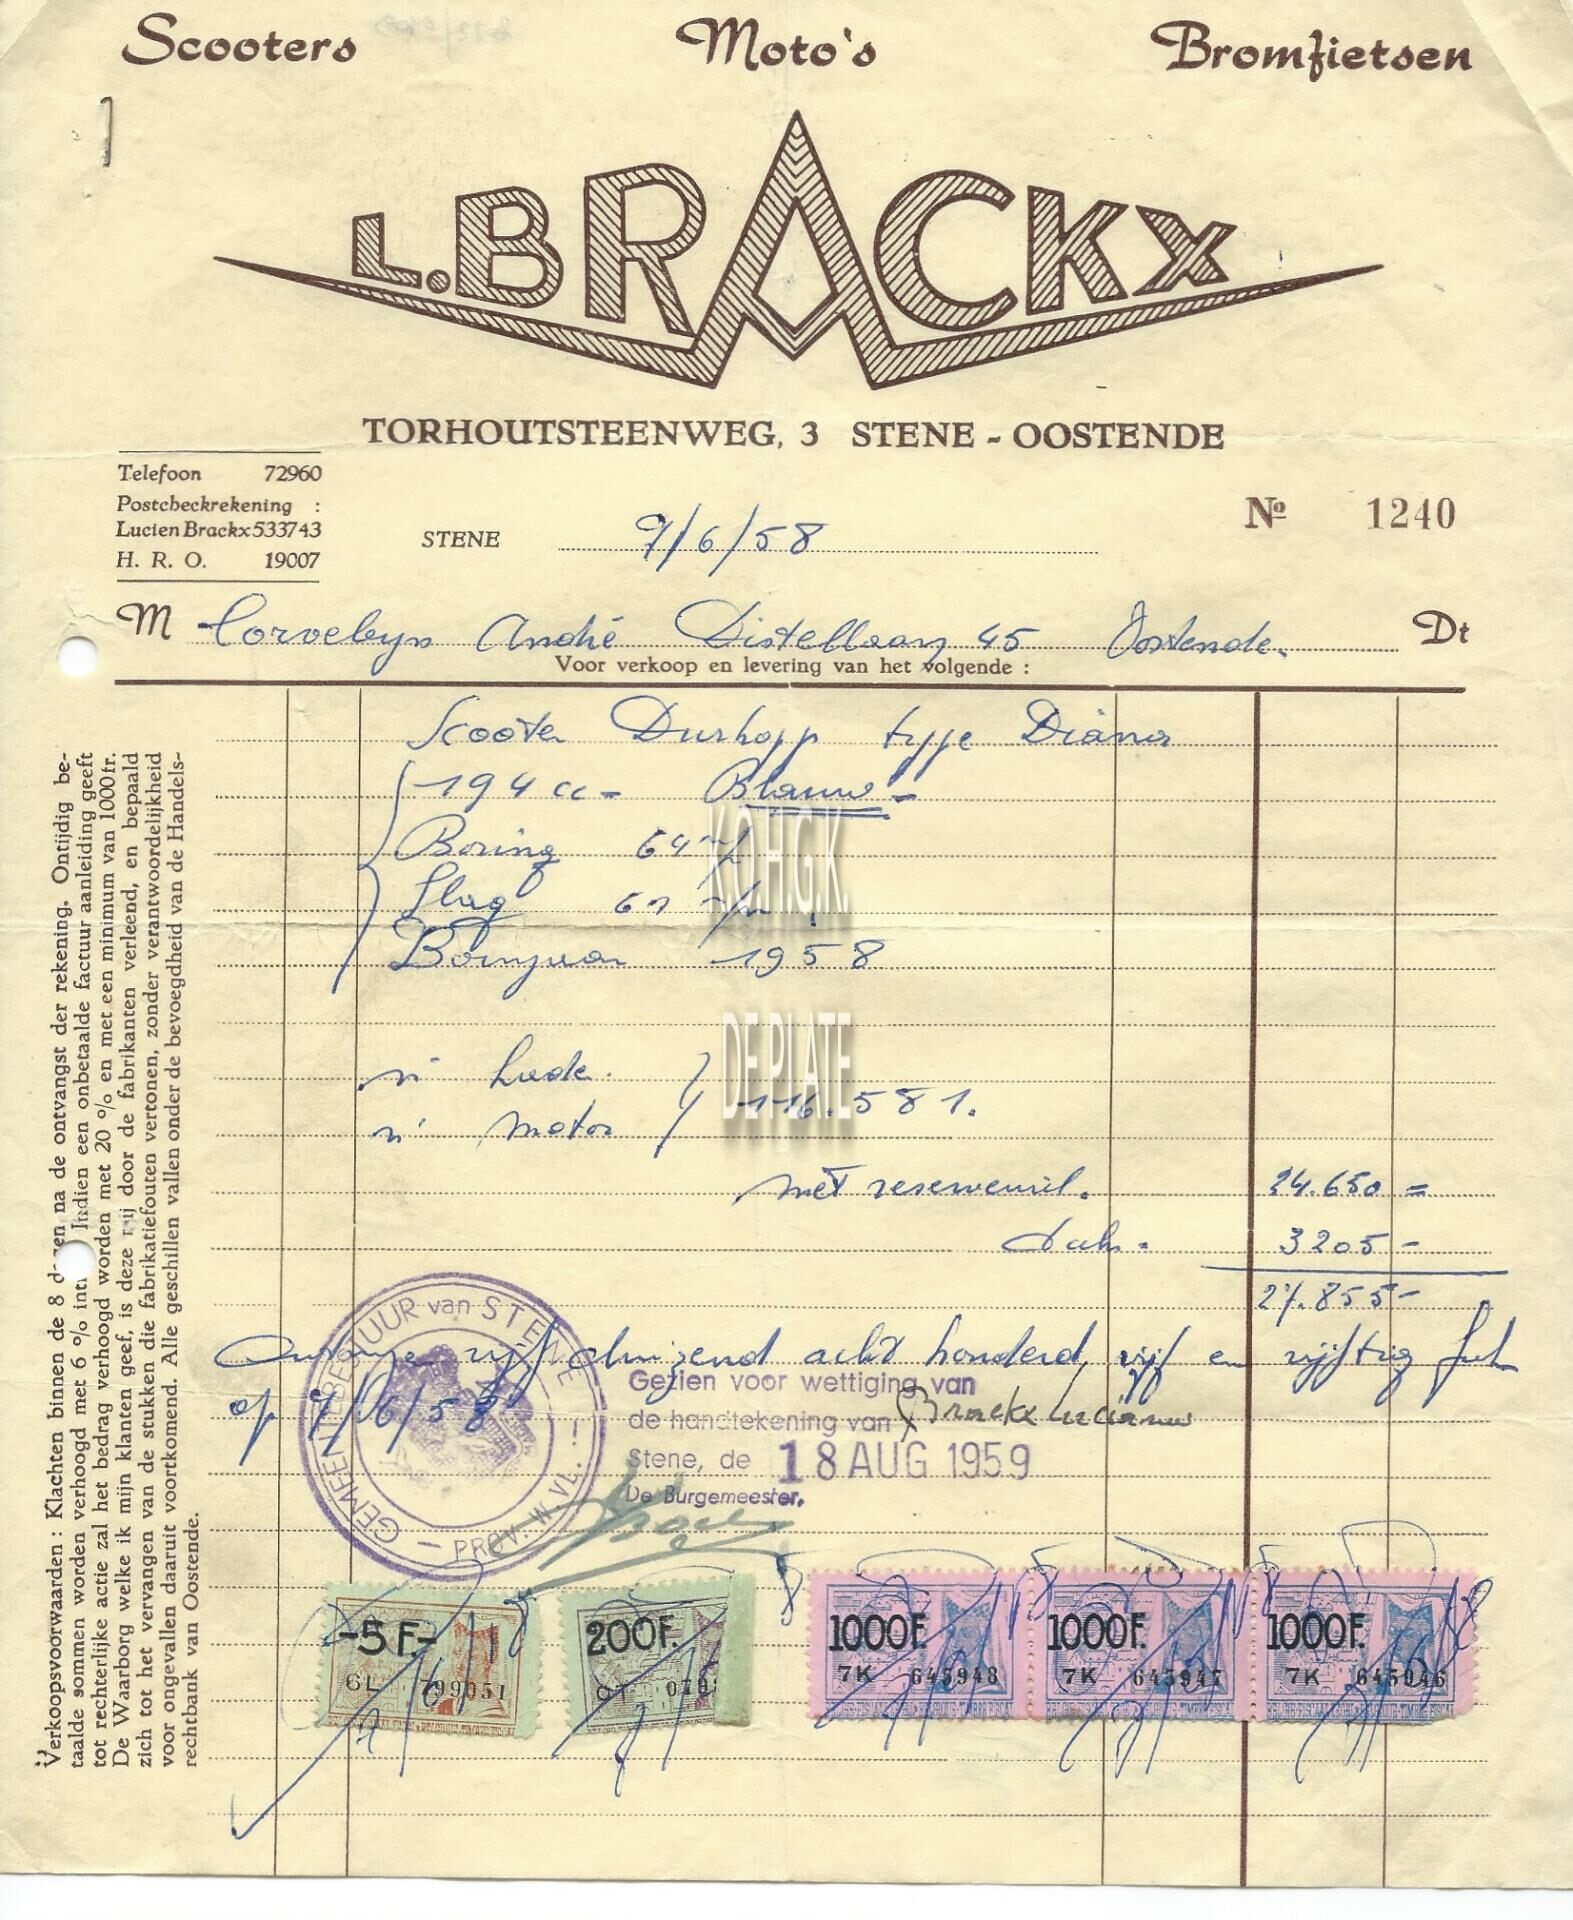 Scooters Moto's Bromfietsen
L. BRACKX
TORHOUTSTEENWEG, 3 STENE - OOSTENDE
Telefoon 72960
Postcheckrekening :
Lucien Brackx 533743
H. R. O. 19007
STENE 7/6/58
No 1240
M Corveleyn André Distellaan 45 Oostende. Dt
Voor verkoop en levering van het volgende :
Scooter Durkopp type Diana
194 cc - Blauw -
Boring 64 m/m
Slag 61 m/m
Bouwjaar 1958
K.O.H.G.K.
DE PLATE
n° kader.
n° motor 116.581.
met reservewiel. 24.650 =
3205 -
27.855 -
vijf duizend acht honderd, vijf en vijftig
op 7/6/58
Gezien voor wettiging van
de handtekening van Brackx Lucien
Stene, de 18 AUG 1959
De Burgemeester,
GEMEENTEBESTUUR van STENE
- PROV. W. VL. -
-5 F- 200F. 1000F. 1000F. 1000F.
GL 799051 7K 645948 7K 645947 7K 645946
Verkoopsvoorwaarden : Klachten binnen de 8 dagen na de ontvangst der rekening. Ontijdig be-
taalde sommen worden verhoogd met 6 % intr Indien een onbetaalde factuur aanleiding geeft
tot rechterlijke actie zal het bedrag verhoogd worden met 20 % en met een minimum van 1000 fr.
De Waarborg welke ik mijn klanten geef, is deze mij door de fabrikanten verleend, en bepaald
zich tot het vervangen van de stukken die fabrikatiefouten vertonen, zonder verantwoordelijkheid
voor ongevallen daaruit voortkomend. Alle geschillen vallen onder de bevoegdheid van de Handels-
rechtbank van Oostende.